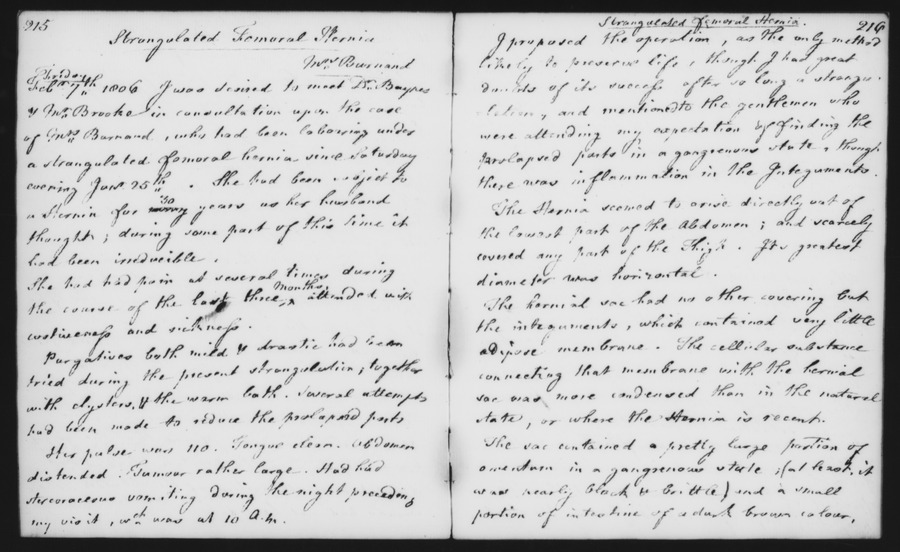 215
Strangulated Femoral Hernia
Mrs Burnand
Friday
Feb 7th 1806 I was desired to meet Dr Baynes
& Mr Brooke in consultation upon the case
of Mrs Burnand, who had been labouring under
a strangulated femoral hernia since Saturday
evening Jany 25th. She had been subject to
a Hernia for 30 years as her husband
thought; during some part of this time it
had been irreducible.
She had had pain at several times during
the course of the last three Months, attended with
costiveness and sickness.
Purgatives both mild & drastic had been
tried during the present strangulation; together
with clysters, & the warm bath. Several attempts
had been made to reduce the prolapsed parts
Her pulse was 110. Tongue clean. Abdomen
distended. Tumour rather large. Had had
stercoraceous vomiting during the night preceding
my visit, wch was at 10 a.m.
Strangulated Femoral Hernia. 216
I proposed the operation, as the only method
likely to preserve life, though I had great
doubts of its success after so long a strangu-
lation; and mentioned to the gentlemen who
were attending my expectation of finding the
prolapsed parts in a gangrenous state, though
there was inflammation in the Integuments.
The Hernia seemed to arise directly out of
the lowest part of the Abdomen; and scarcely
covered any part of the Thigh. Its greatest
diameter was horizontal.
The hernial sac had no other covering but
the integuments, which contained very little
adipose membrane. The cellular substance
connecting that membrane with the hernial
sac was more condensed than in the natural
state, or where the Hernia is recent.
The sac contained a pretty large portion of
omentum in a gangrenous state; (at least, it
was nearly black & brittle) and a small
portion of intestine of a dark brown colour,